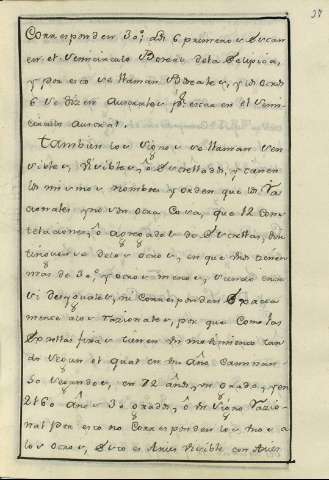 37
Corresponden 30°: los 6 primeros
en el Semicirculo Boreal dela Ecliptica,
y por eso se llaman Boreales, y los otros
6 se dizen Australes pr. estar en el Semi-
circulo Austral.
Tambien los Signos se llaman Sen
sibles, Visibles, ô Estrellados, y tienen
los mismos nombres y orden que los Ra
cionales y no son otra Cosa, que 12 Cons
telaciones, ô agregados de Estrellas, dis
tinguense delos otros, en que Unos tienen
mas de 30°. y otros menos, siendo entre
si desiguales, ni Corresponden Exacta
mente alos Razionales, por que Como las
Estrellas fixas tienen Un movimiento tan
do segun el qual en Un año Caminan
50 segundos, en 72 años, Un grado, y en
2160 años 30 grados, ô Un Signo Razio-
nal por eso no Corresponden los Unos a
los otros, Esto es Aries Visible con Aries